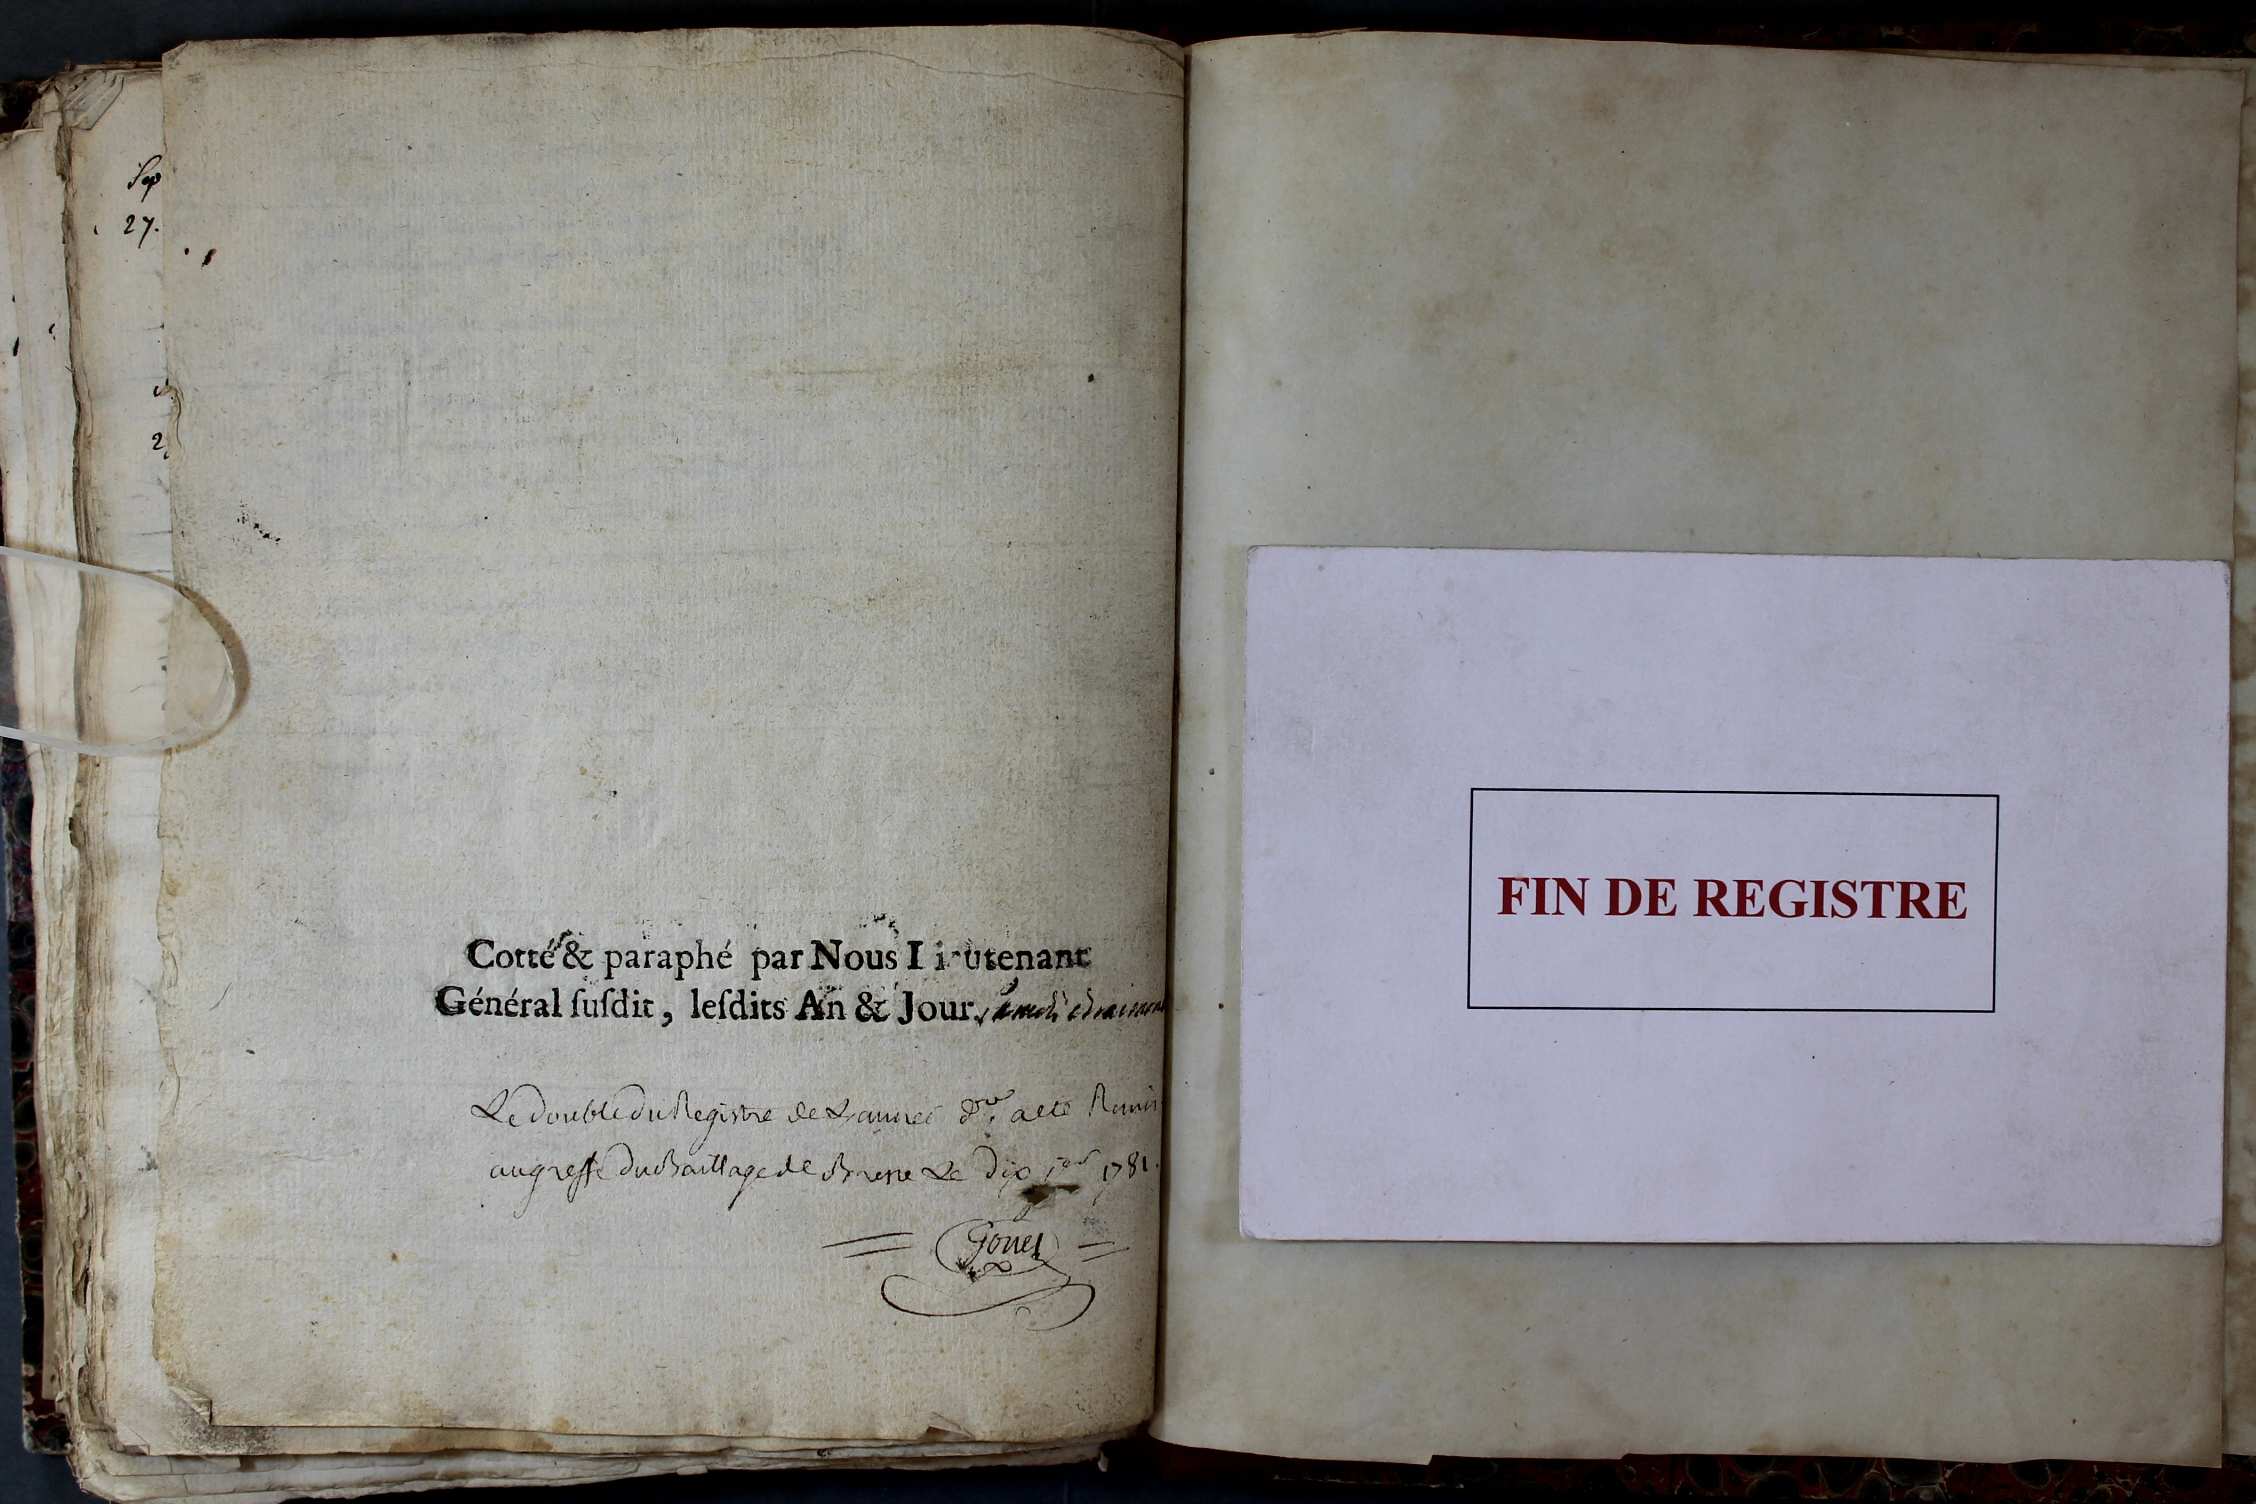 Sep
27.
2
Cotté & paraphé par Nous Lieutenant
Général ſuſdit, leſdits An & Jour.
Le double du Registre de L'année d.re a eté Remis
au greffe du Baillage de Bresse Le Dix J.er 1781.
Gouet
FIN DE REGISTRE